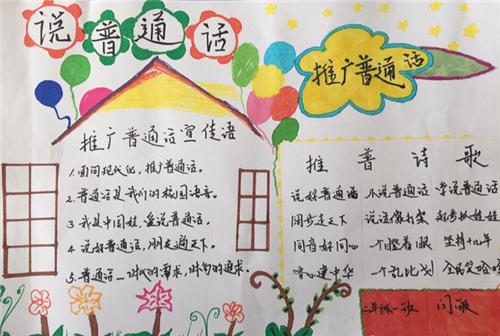 说普通话
推广普通话
推广普通话宣传语
1.面向现代化，推广普通话。
2.普通话是我们的校园语言。
3.我是中国娃，爱说普通话。
4.说好普通话，朋友遍天下。
5.普通话—时代的需求，时尚的追求。
推普诗歌
说好普通话 不说普通话 学说普通话
同步走天下 说话像打架 起步从娃娃
同音好同心 一个瞪着眼 坚持十几年
一个乱比划 全民笑哈哈
二年级一班